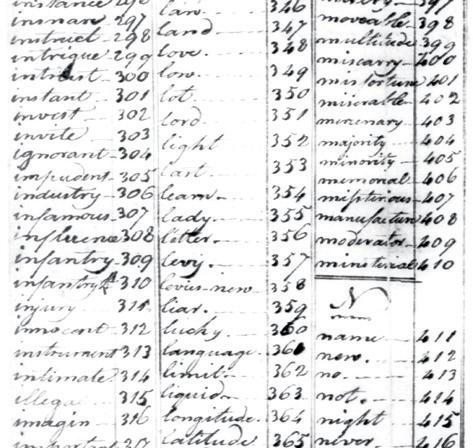 instance 296
insnare 297
instruct 298
intrigue 299
intrest 300
instant 301
invest 302
invite 303
ignorant 304
impudent 305
industry 306
infamous 307
influence 308
infantry 309
infantry 310
injury 311
innocent 312
instrument 313
intimate 314
illegal 315
imagin 316
important
law 346
land 347
love 348
low 349
lot 350
lord 351
light 352
last 353
learn 354
lady 355
letter 356
levy 357
levies-new 358
liar 359
lucky 360
language 361
limit 362
liquid 363
longitude 364
latitude 365
misery 397
moveable 398
multitude 399
miscarry 400
misfortune 401
miserable 402
mercenary 403
majority 404
minority 405
memorial 406
misterious 407
manufacture 408
moderator 409
ministerial 410
N
name 411
new 412
no. 413
not. 414
night 415
never 416